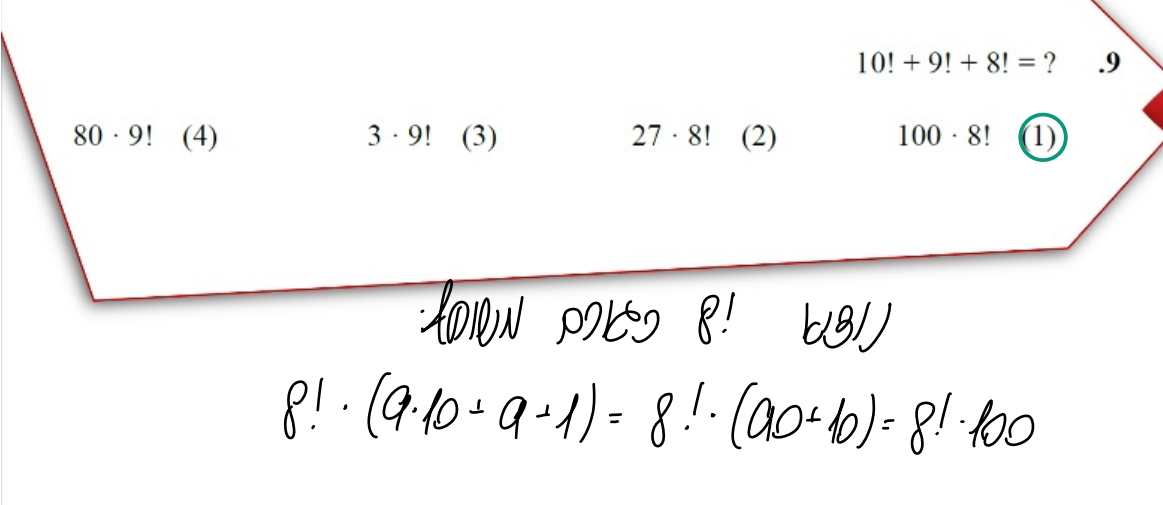 .9 10! + 9! + 8! = ?
(1) 100 · 8! (2) 27 · 8! (3) 3 · 9! (4) 80 · 9!
נוציא 8! כגורם משותף.
8! · (9·10 + 9 + 1) = 8! · (90+10) = 8! · 100